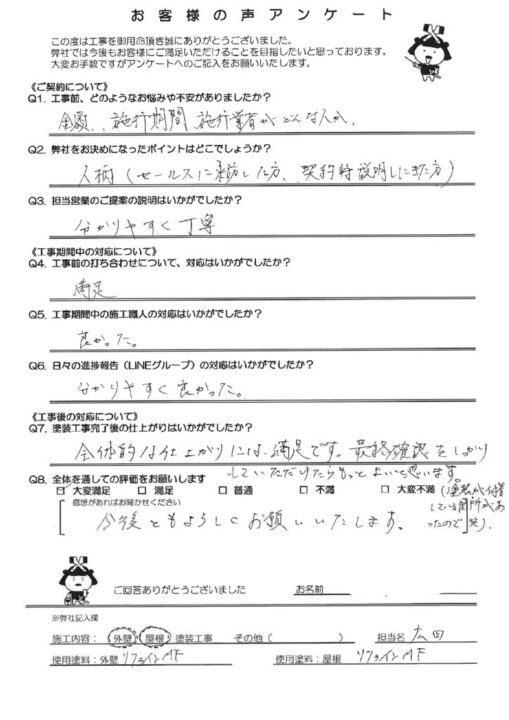 お客様の声アンケート
この度は工事を御用命頂き誠にありがとうございました。
弊社では今後もお客様にご満足いただけることを目指したいと思っております。
大変お手数ですがアンケートへのご記入をお願いいたします。
《ご契約について》
Q1. 工事前、どのようなお悩みや不安がありましたか？
金額、施行期間、施行業者がどんな人か、
Q2. 弊社をお決めになったポイントはどこでしょうか？
人柄（セールスに来訪した方、契約時説明しにきた方）
Q3. 担当営業のご提案の説明はいかがでしたか？
分かりやすく丁寧
《工事期間中の対応について》
Q4. 工事前の打ち合わせについて、対応はいかがでしたか？
満足
Q5. 工事期間中の施工職人の対応はいかがでしたか？
良かった。
Q6. 日々の進捗報告（LINEグループ）の対応はいかがでしたか？
分かりやすく良かった。
《工事後の対応について》
Q7. 塗装工事完了後の仕上がりはいかがでしたか？
全体的な仕上がりには、満足です。最終確認をしっかり
していただけたらもっとよいと思います。
(塗装が付着
している箇所があ
ったので)
Q8. 全体を通しての評価をお願いします
☑ 大変満足 □ 満足 □ 普通 □ 不満 □ 大変不満
感想があればお聞かせください
今後ともよろしくお願いいたします。
ご回答ありがとうございました お名前
※弊社記入欄
施工内容： 外壁・屋根 塗装工事 その他（ ） 担当名 広田
使用塗料：外壁 リファインMF 使用塗料：屋根 リファインMF